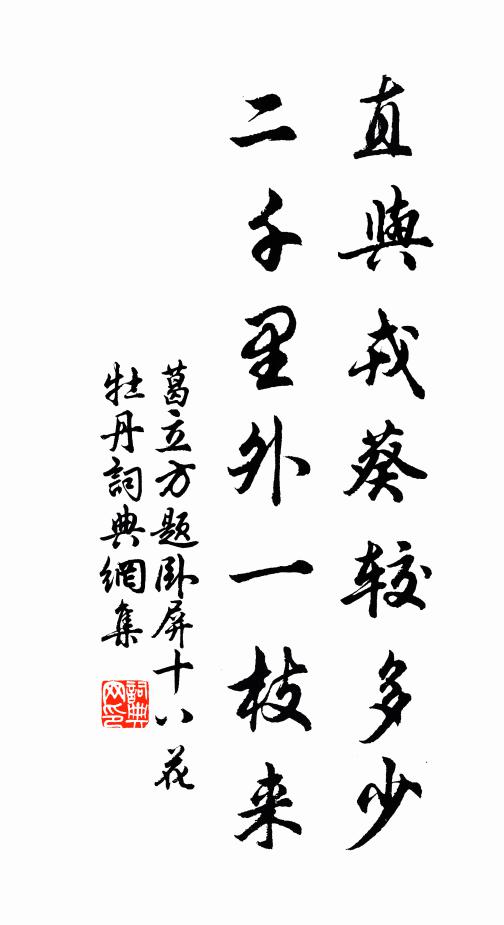 直與戎葵较多少
二千里外一枝来
葛立方题卧屏十八花
牡丹詞典網集
詞典
网印